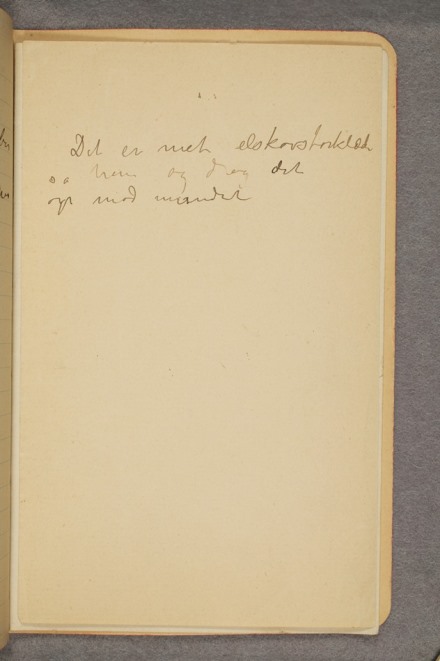 Det er met elskovstørklæd
så hun og drog det
op mod mundet